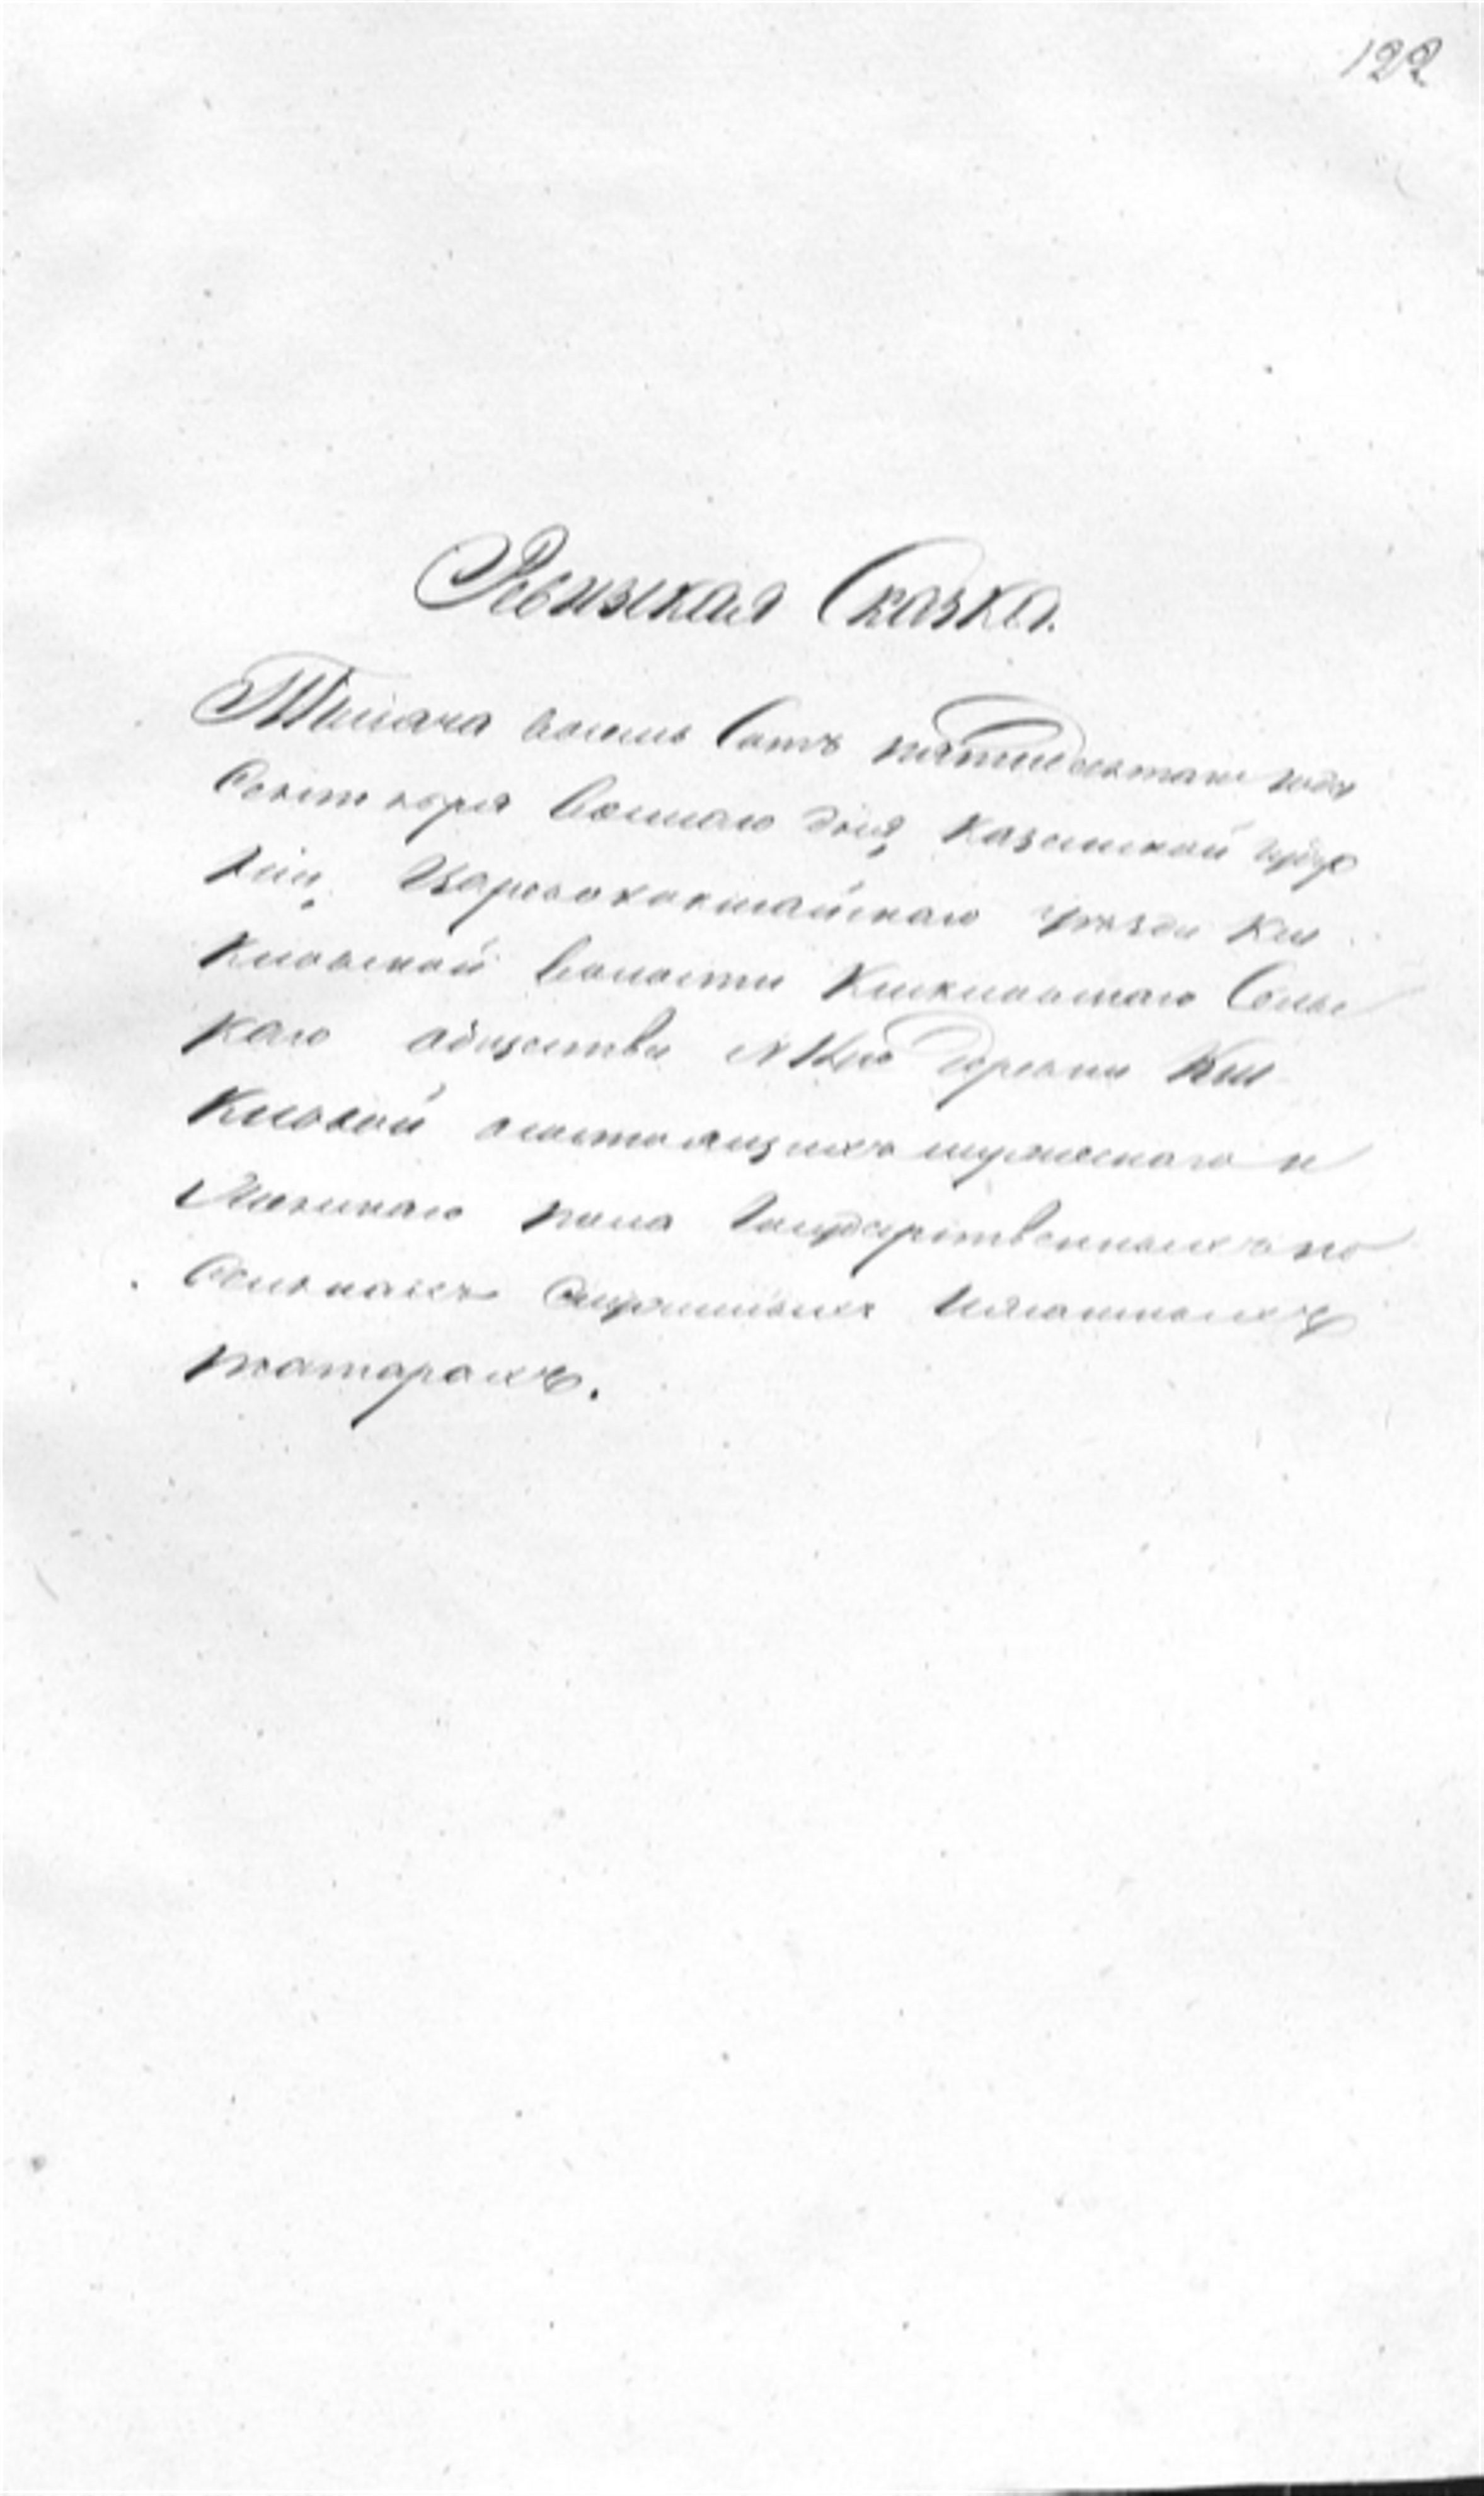 122
Ревизская Сказка.
Тысяча восемь Сотъ пятидесятаго года
Сентября дня Казанской Губер
ніи, Царевококшайскаго уѣзда Кш
кловской волости Кшкловскаго Сельс
каго общества деревни Кш
кловой о состоящихъ мужескаго и
Женскаго пола Государственныхъ по
Селянахъ Служилыхъ Ясашныхъ
татарахъ.